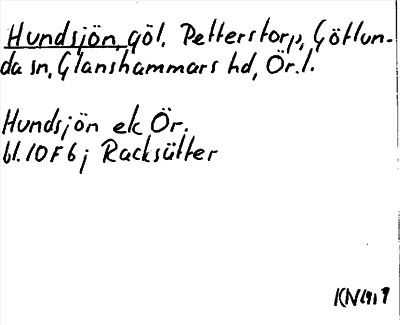 Hundsjön, göl, Petterstorp, Götlun-
da sn, Glanshammars hd, Ör.l.
Hundsjön ek Ör.
bl. 10F6j Racksätter